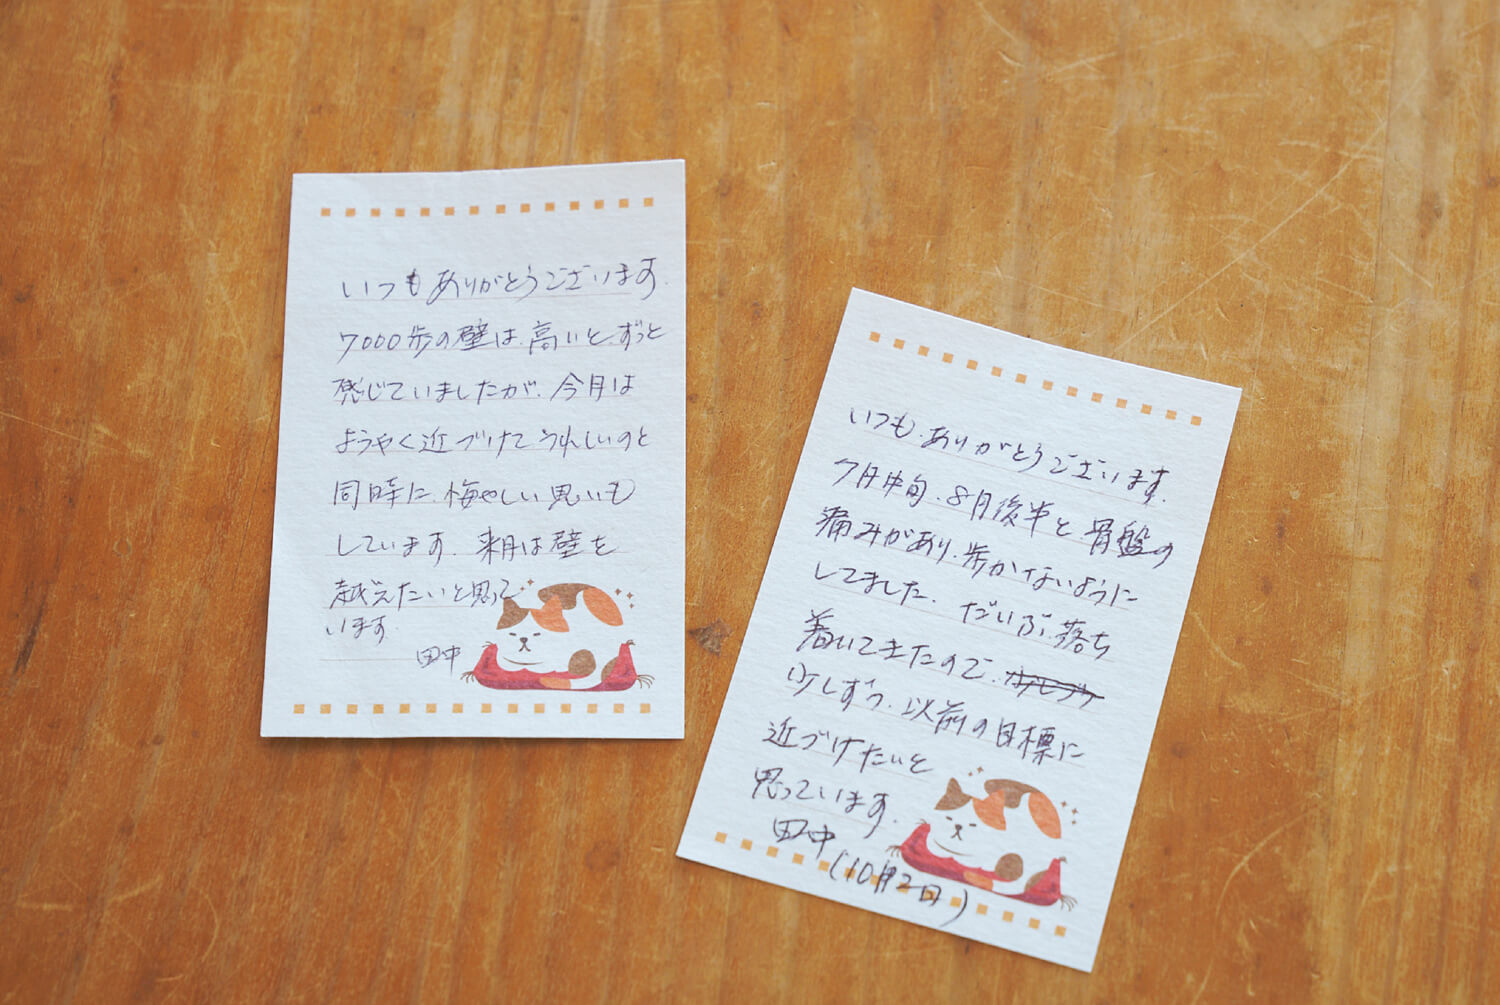 いつもありがとうございます.
7000歩の壁は、高いと、ずっと
感じていましたが、今月は
ようやく近づけてうれしいのと
同時に、悔やしい思いも
しています. 来月は壁を
越えたいと思って
います.
田中
いつも、ありがとうございます.
7月中旬、8月後半と骨盤の
痛みがあり、歩かないように
してました. だいぶ落ち
着いてきたので、
少しずつ、以前の目標に
近づけたいと
思っています.
田中
(10月2日)